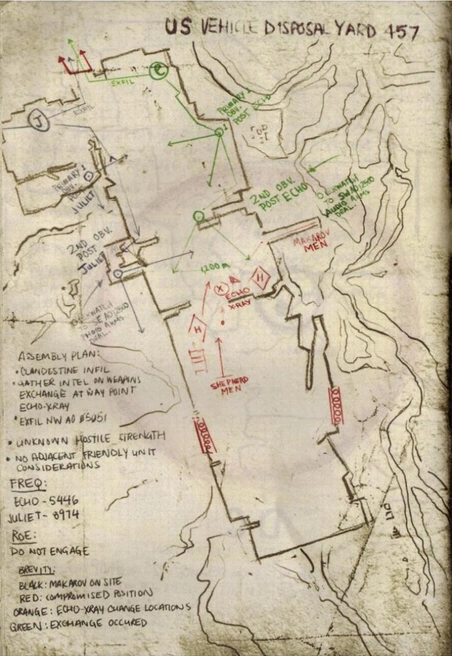 US VEHICLE DISPOSAL YARD 457
E
EXFIL
PRIMARY OBV.
POST ECHO
J
PRIMARY
POST
JULIET
2ND OBV.
POST ECHO
2ND OBV.
POST
JULIET
MAKAROV
MEN
1200 m
X
ECHO
X-RAY
H
H
SHEPHERD
MEN
ASSEMBLY PLAN:
• CLANDESTINE INFIL
• GATHER INTEL ON WEAPONS
EXCHANGE AT WAY POINT
ECHO-XRAY
• EXFIL NW AO
• UNKNOWN HOSTILE STRENGTH
• NO ADJACENT FRIENDLY UNIT
CONSIDERATIONS
FREQ:
ECHO - 5446
JULIET - 8974
ROE:
DO NOT ENGAGE
BREVITY:
BLACK: MAKAROV ON SITE
RED: COMPROMISED POSITION
ORANGE: ECHO-XRAY CHANGE LOCATIONS
GREEN: EXCHANGE OCCURED